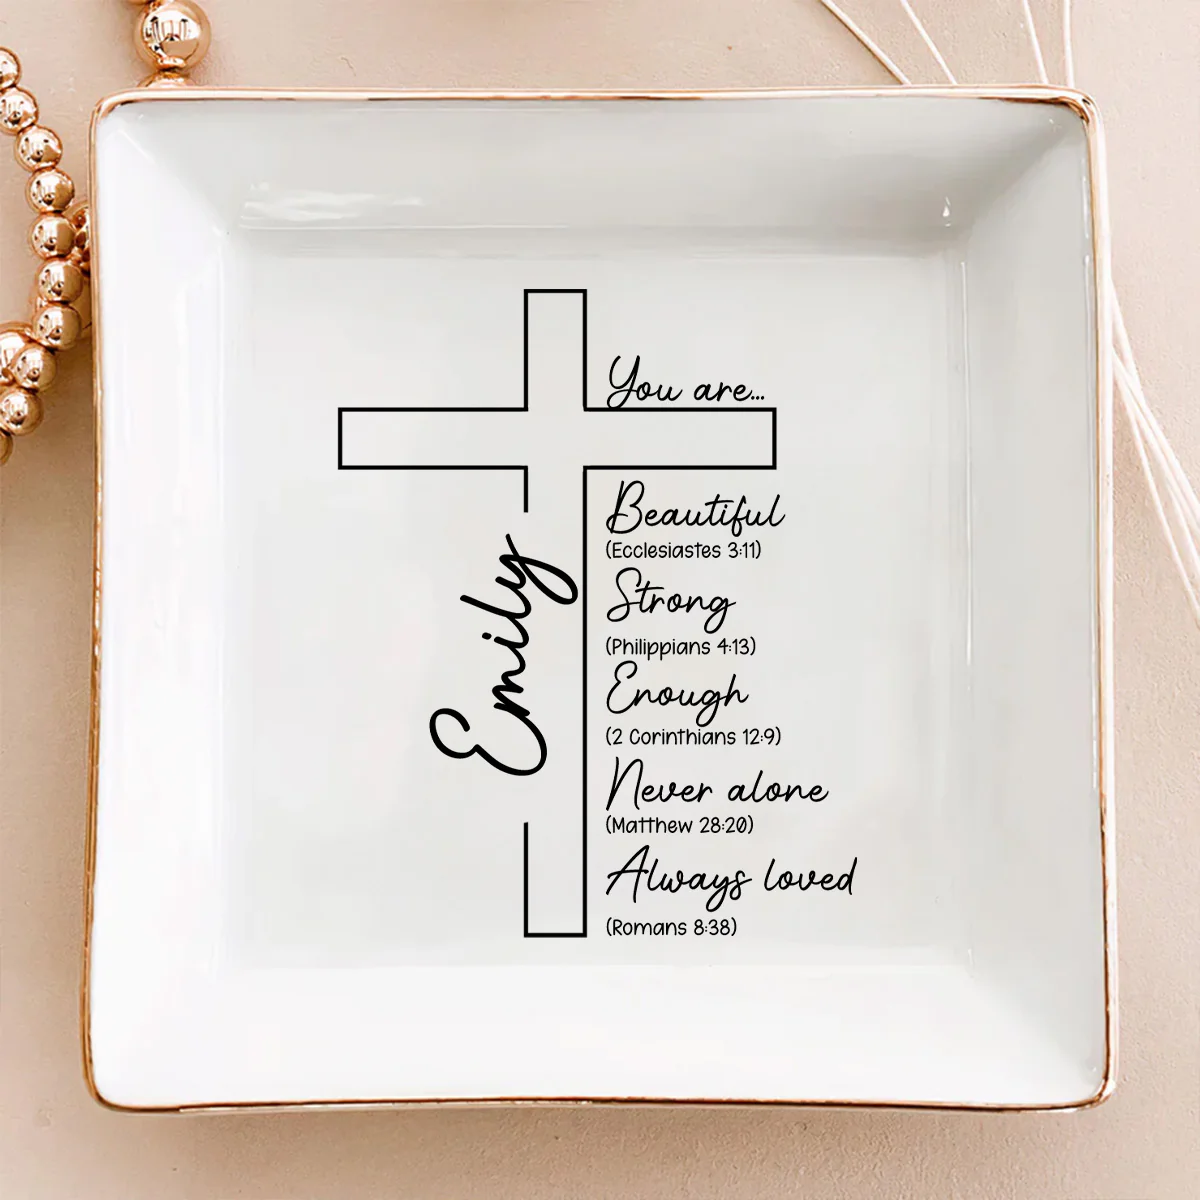 You are...
Emily
Beautiful
(Ecclesiastes 3:11)
Strong
(Philippians 4:13)
Enough
(2 Corinthians 12:9)
Never alone
(Matthew 28:20)
Always loved
(Romans 8:38)